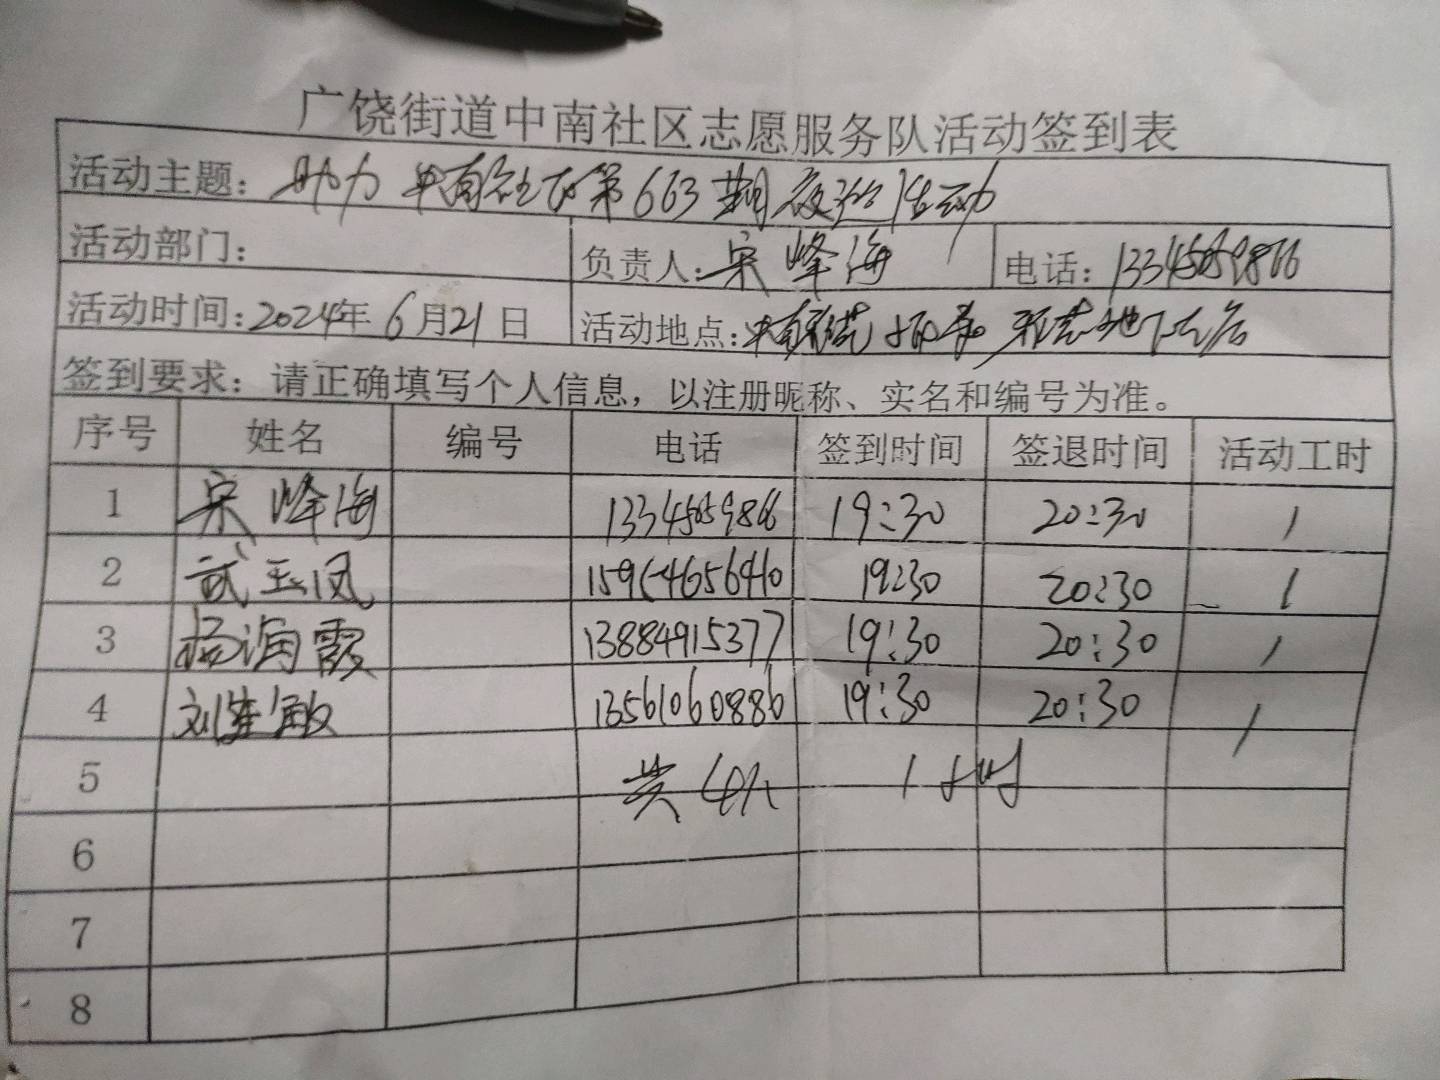 广饶街道中南社区志愿服务队活动签到表
活动主题：助力中南社区第663期夜巡活动
活动部门：
负责人：宋峰海
电话：13345059866
活动时间：2024年6月21日
活动地点：中南
签到要求：请正确填写个人信息，以注册昵称、实名和编号为准。
序号 姓名 编号 电话 签到时间 签退时间 活动工时
1 宋峰海 13345059866 19:30 20:30 1
2 武玉凤 15954656410 19:30 20:30 1
3 杨海霞 13884915377 19:30 20:30 1
4 刘建敏 13561060886 19:30 20:30 1
5 共4人 1小时
6
7
8